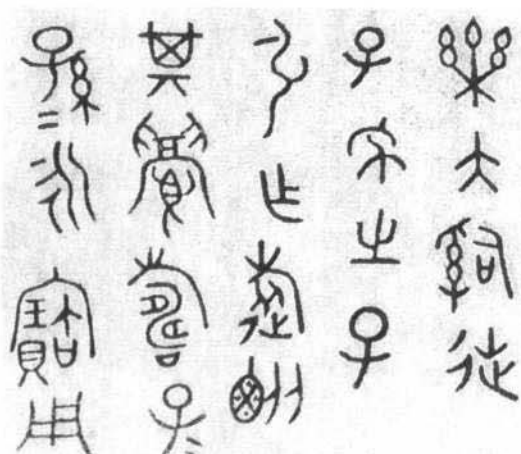 樂大嗣徒
子之子
引乍旅
其眉壽子
孫=永寶用